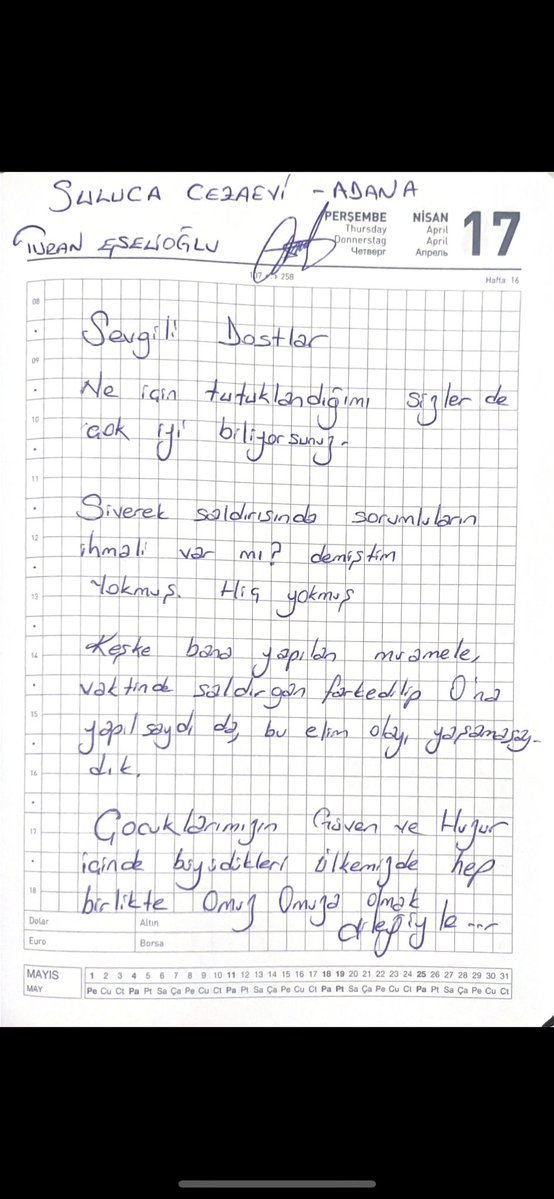 SULUCA CEZAEVİ - ADANA
TURAN EŞELİOĞLU
PERŞEMBE NİSAN 17
Thursday April
Donnerstag April
Четверг Апрель
258
Hafta 16
08
Sevgili Dostlar
09
Ne için tutuklandığımı sizler de
10
çok iyi biliyorsunuz.
11
Siverek saldırısında sorumluların
12
ihmali var mı? demiştim
13
Yokmuş. Hiç yokmuş
14
Keşke bana yapılan muamele,
vaktinde saldırgan farkedilip O'na
15
yapılsaydı da, bu elim olayı yaşamasay-
16
dık.
17
Çocuklarımızın Güven ve Huzur
içinde büyüdükleri ülkemizde hep
18
birlikte Omuz Omuza olmak
dileğiyle...
Dolar Altın
Euro Borsa
MAYIS 1 2 3 4 5 6 7 8 9 10 11 12 13 14 15 16 17 18 19 20 21 22 23 24 25 26 27 28 29 30 31
MAY Pe Cu Ct Pa Pt Sa Ça Pe Cu Ct Pa Pt Sa Ça Pe Cu Ct Pa Pt Sa Ça Pe Cu Ct Pa Pt Sa Ça Pe Cu Ct